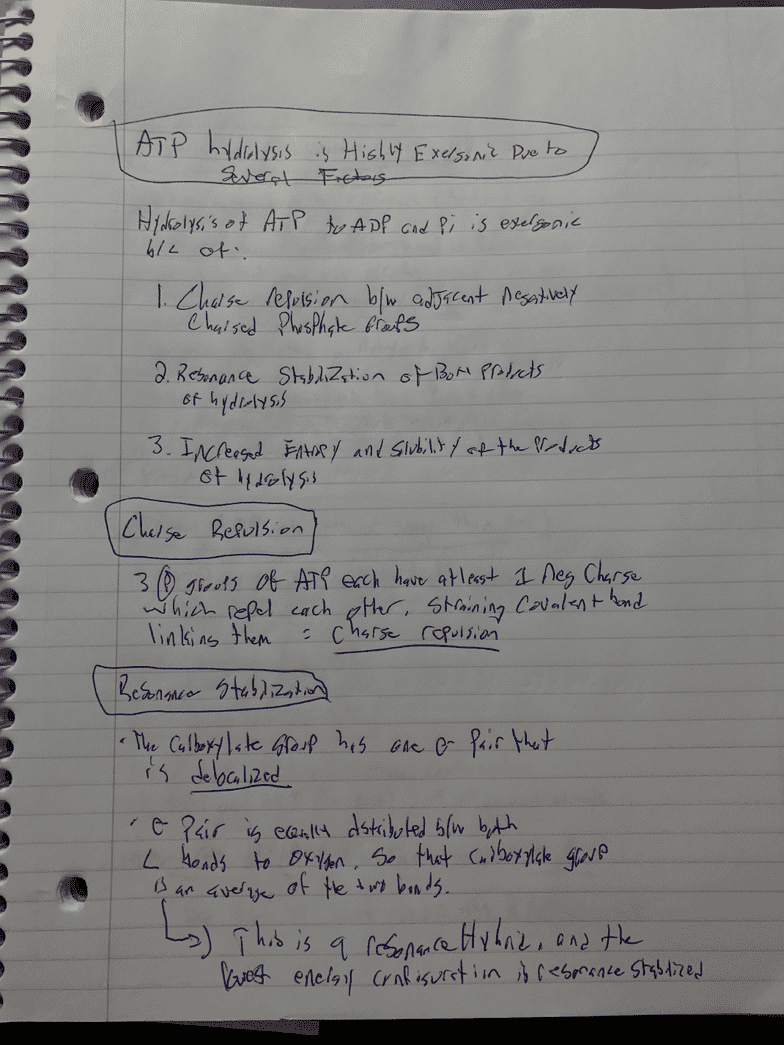 ATP hydrolysis is Highly Exergonic Due to
Several Factors
Hydrolysis of ATP to ADP and Pi is exergonic
b/c of:
1. Charge repulsion b/w adjacent negatively
Charged Phosphate Groups
2. Resonance Stabilization of Both Products
of hydrolysis
3. Increased Entropy and Solubility of the Products
of hydrolysis
Charge Repulsion
3 P groups of ATP each have atleast 1 neg Charge
which repel each other, straining Covalent bond
linking them = Charge repulsion
Resonance Stabilization
• The Carboxylate group has one e- Pair that
is delocalized
• e- Pair is equally distributed b/w both
C bonds to oxygen, so that carboxylate group
is an average of the two bonds.
↳ This is a resonance Hybrid, and the
lowest energy configuration is resonance stabilized